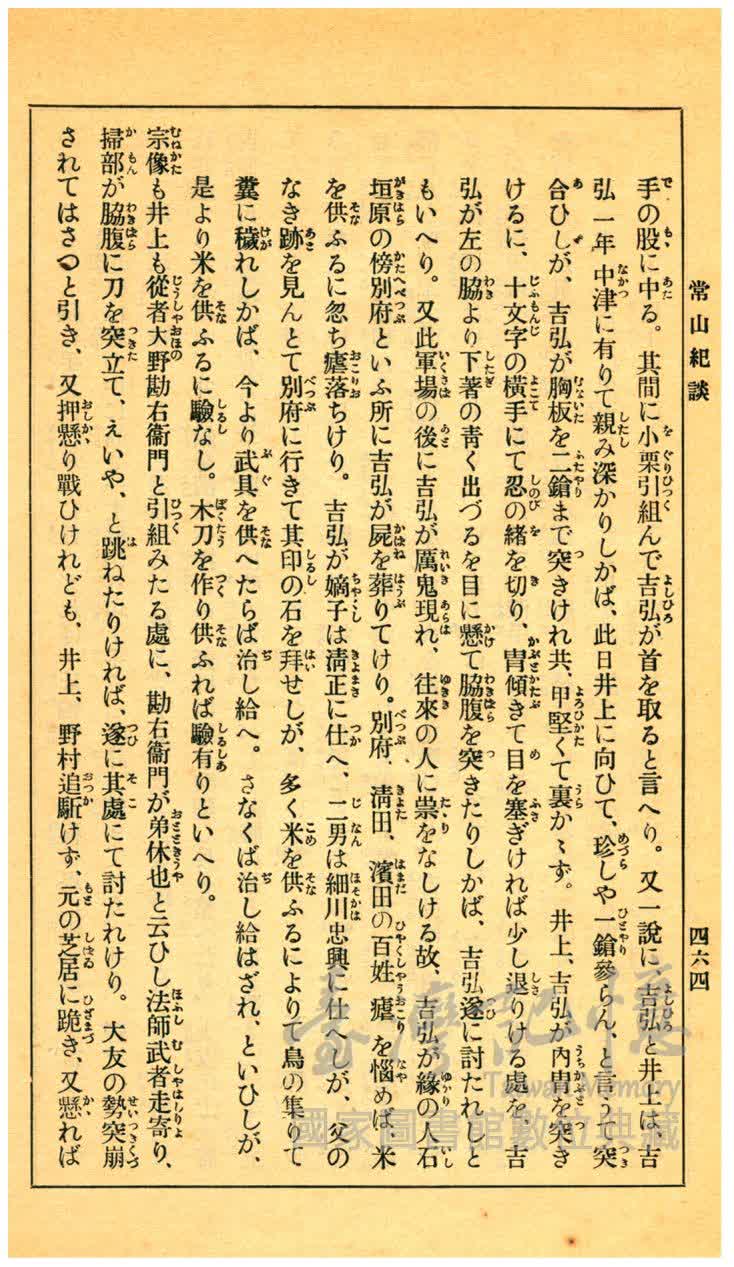 常山紀談
四六四
手の股に中る。其間に小栗引組んで吉弘が首を取ると言へり。又一說に、吉弘と井上は、吉
弘一年中津に有りて親み深かりしかば、此日井上に向ひて、珍しや一鎗參らん、と言うて突
合ひしが、吉弘が胸板を二鎗まで突きけれ共、甲堅くて裏かゝず。井上、吉弘が內冑を突き
けるに、十文字の橫手にて忍の緖を切り、冑傾きて目を塞ぎければ少し退りける處を、吉
弘が左の脇より下著の靑く出づるを目に懸て脇腹を突きたりしかば、吉弘遂に討たれしと
もいへり。又此軍場の後に吉弘が厲鬼現れ、往來の人に祟をなしける故、吉弘が緣の人石
垣原の傍別府といふ所に吉弘が屍を葬りてけり。別府、淸田、濱田の百姓瘧を惱めば、米
を供ふるに忽ち瘧落ちけり。吉弘が嫡子は淸正に仕へ、二男は細川忠興に仕へしが、父の
なき跡を見んとて別府に行きて其印の石を拜せしが、多く米を供ふるによりて鳥の集りて
糞に穢れしかば、今より武具を供へたらば治し給へ。さなくば治し給はざれ、といひしが、
是より米を供ふるに驗なし。木刀を作り供ふれば驗有りといへり。
宗像も井上も從者大野勘右衞門と引組みたる處に、勘右衞門が弟休也と云ひし法師武者走寄り、
掃部が脇腹に刀を突立て、えいや、と跳ねたりければ、遂に其處にて討たれけり。大友の勢突崩
されてはさつと引き、又押懸り戰ひけれども、井上、野村追駈けず、元の芝居に跪き、又懸れば
臺灣記憶
Taiwan Memory
國家圖書館數位典藏